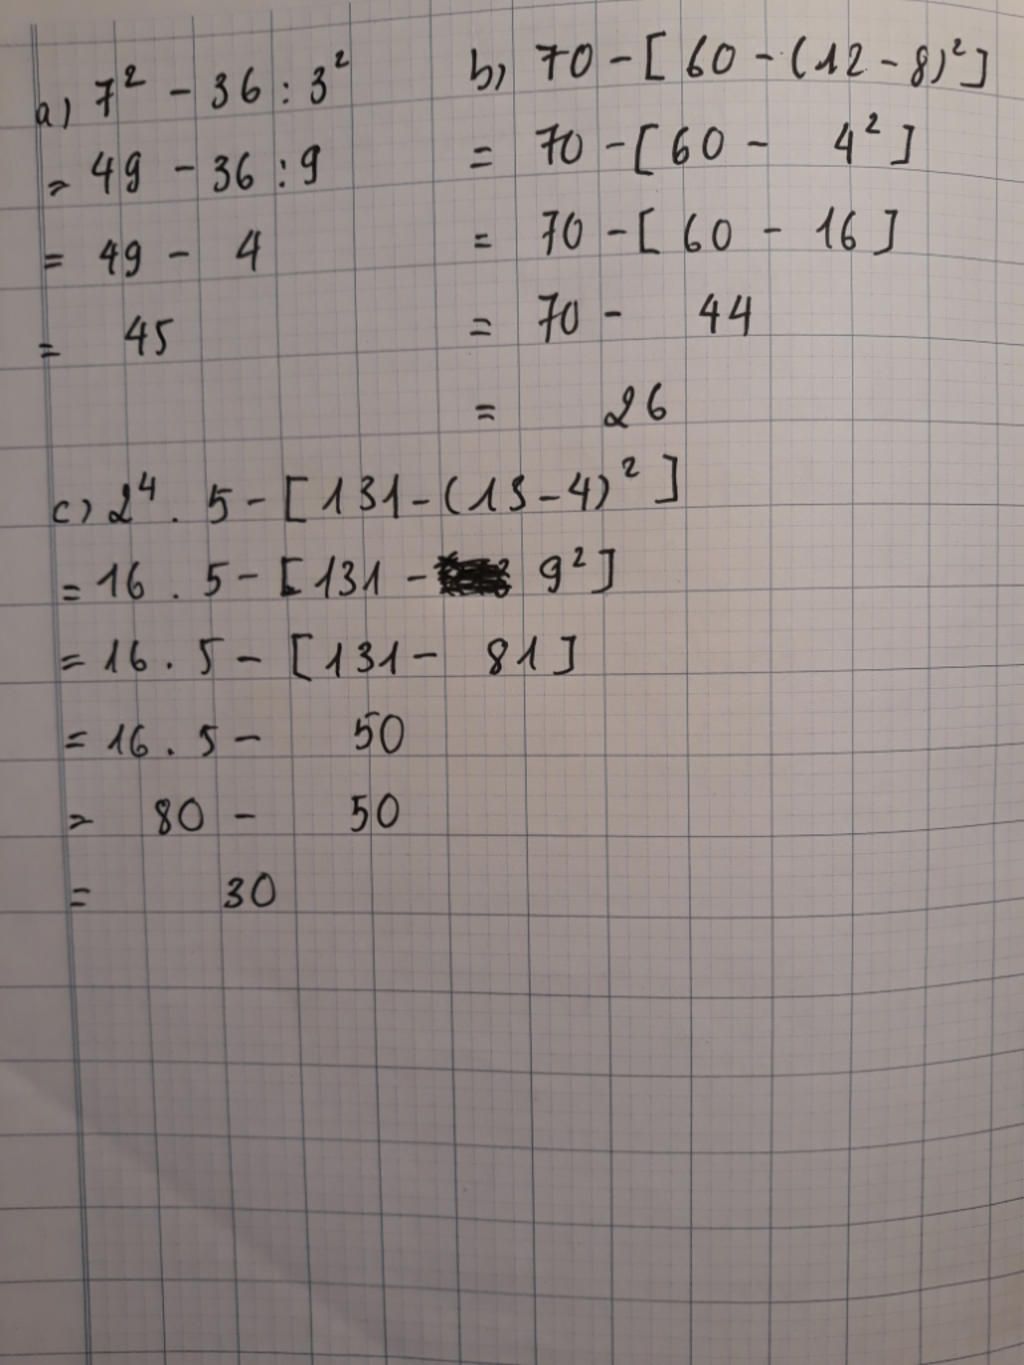 a) 7² - 36 : 3²
= 49 - 36 : 9
= 49 - 4
= 45
b) 70 - [60 - (12 - 8)²]
= 70 - [60 - 4²]
= 70 - [60 - 16]
= 70 - 44
= 26
c) 2⁴ . 5 - [131 - (13 - 4)²]
= 16 . 5 - [131 - 9²]
= 16 . 5 - [131 - 81]
= 16 . 5 - 50
= 80 - 50
= 30